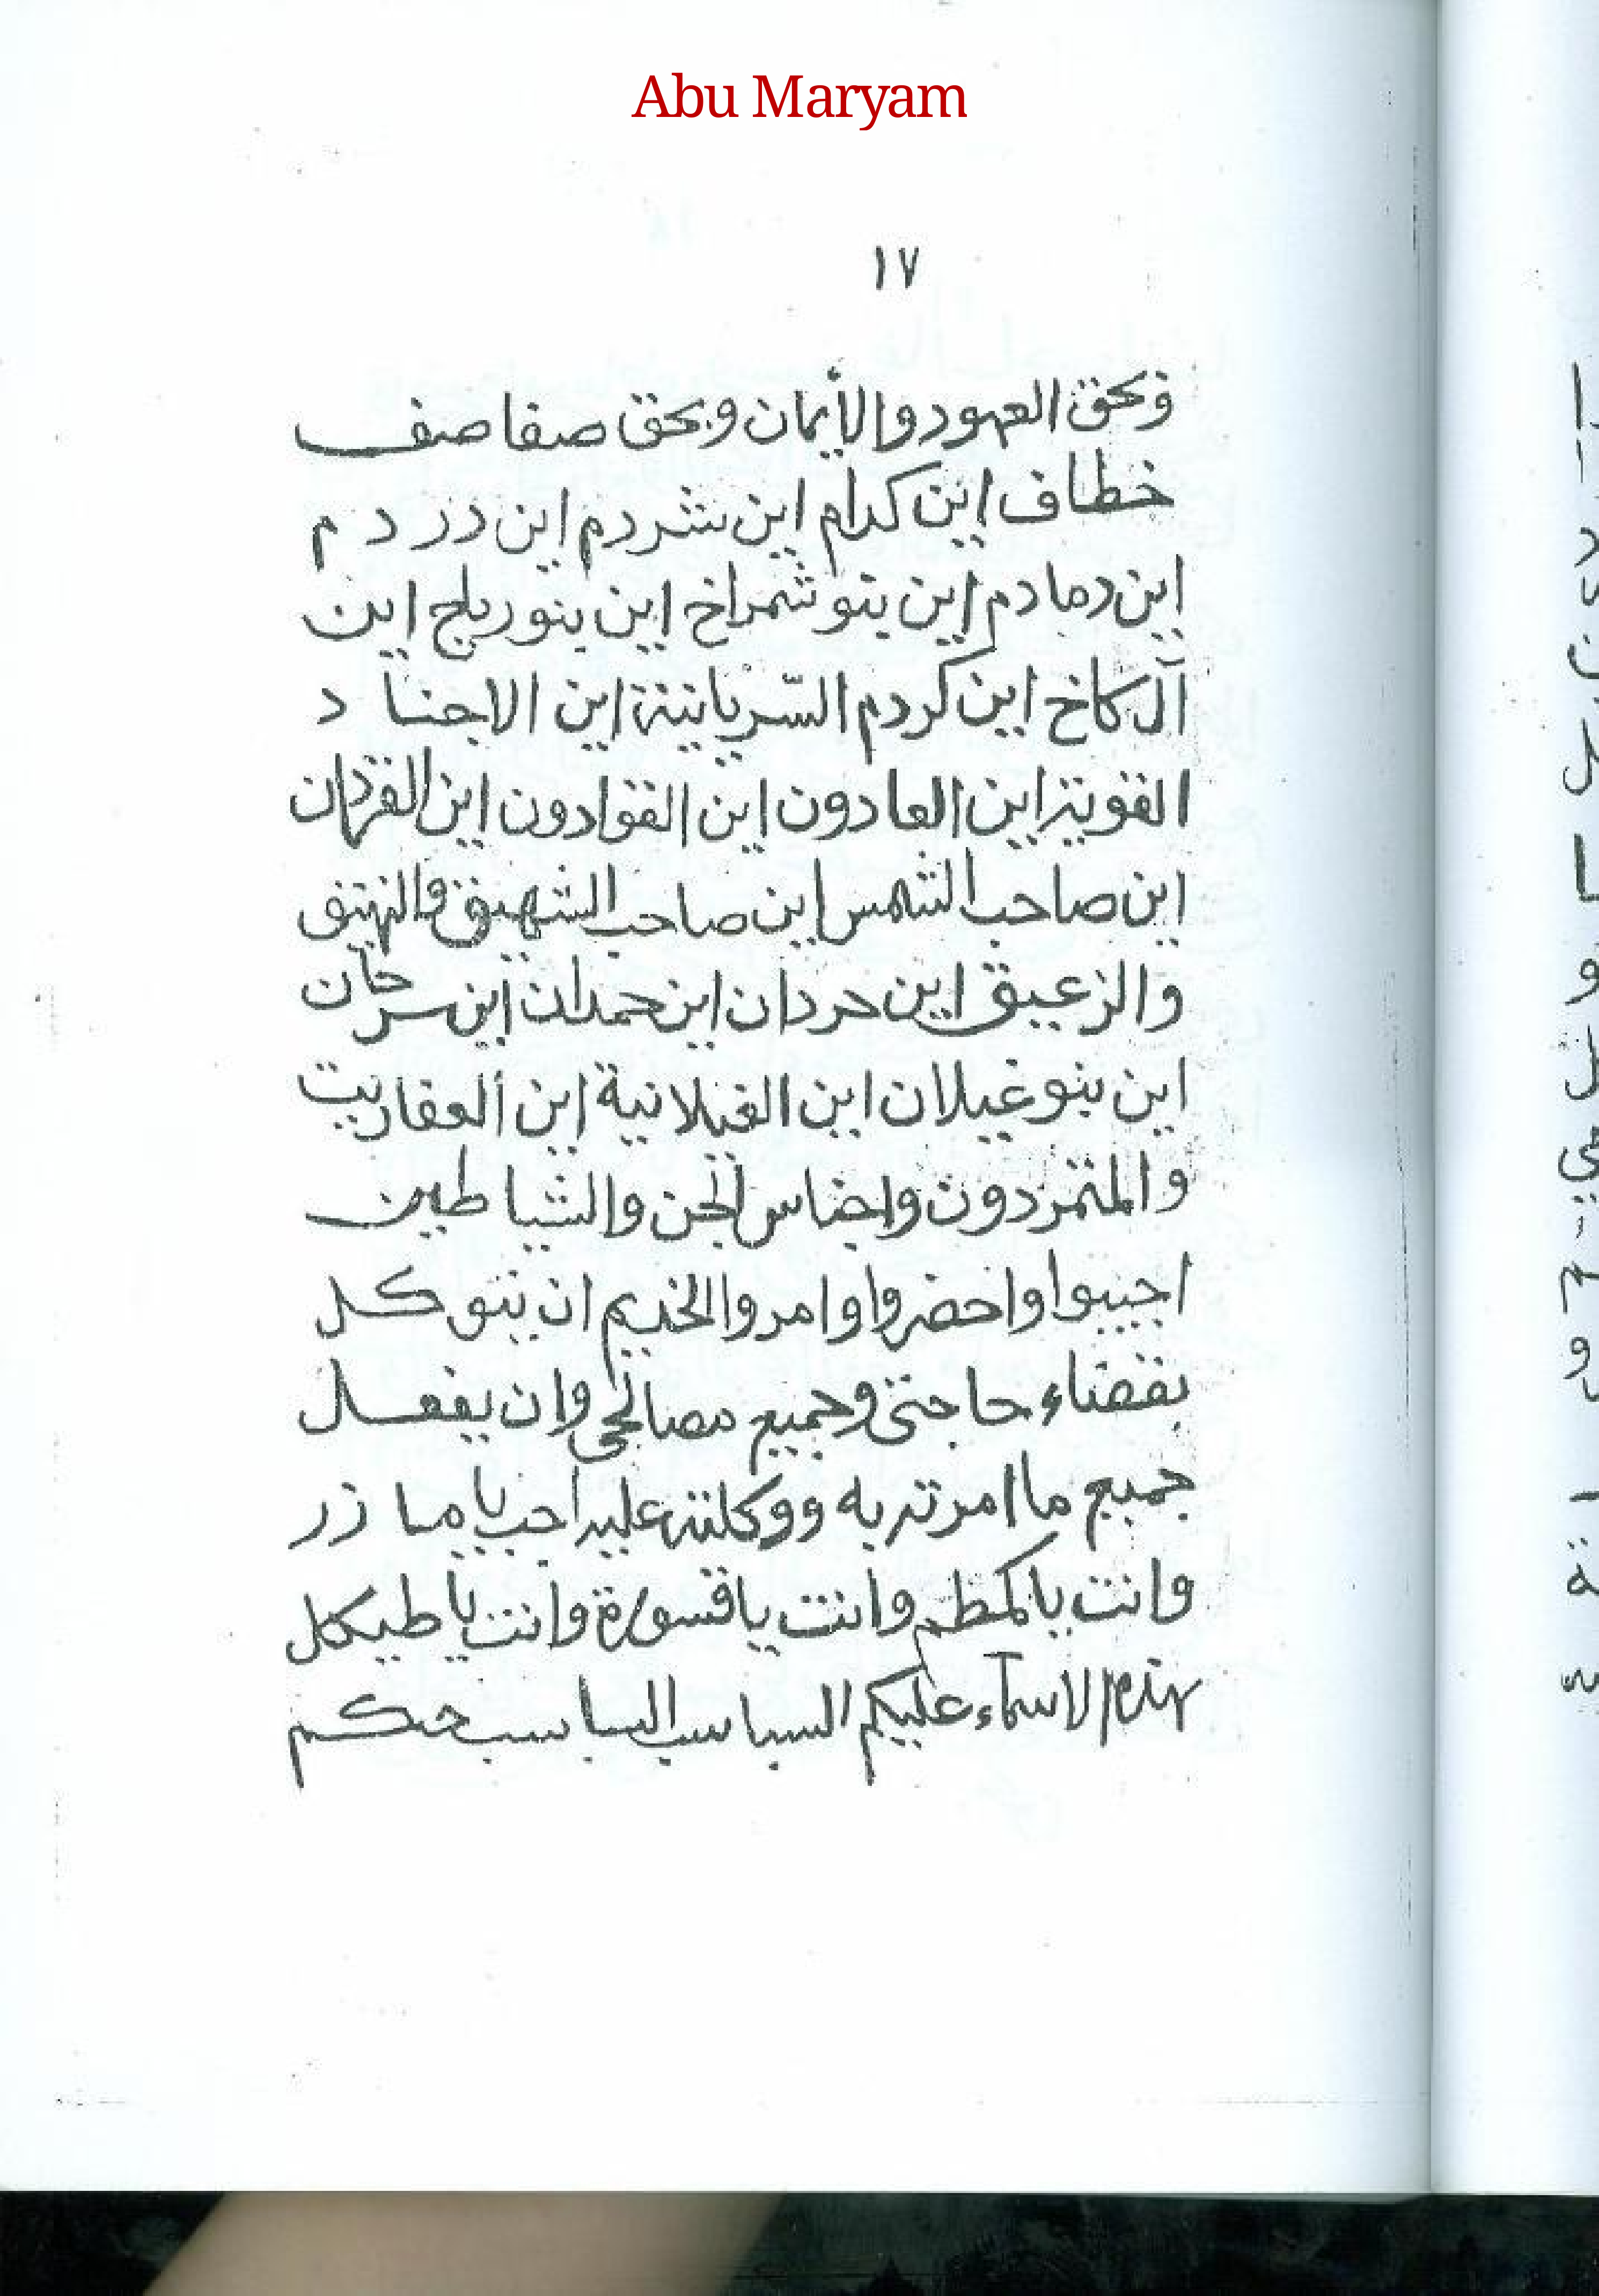 Abu Maryam
١٧
وبحق العهود والأيمان وبحق صفا صف
خطاف اين كدام اين شردم اين در د م
اين دمادم اين بنو شمراخ اين بنو رياح اين
آل كاخ اين كردم السّريانية اين الاجنا د
القوية اين العادون اين القوادون اين
اين صاحب الشمس اين صاحب الشهيق والنهيق
والزعيق اين حردان اين حمدان اين سرحان
اين بنو غيلان اين الغيلانية اين العفاريت
والمتمردون واجناس الجن والشياطين
اجيبوا واحضروا وامروا الخديم ان يتوكل
بقضاء حاجتي وجميع مصالحي وان يفعل
جميع ما امرته به ووكلته عليه اجب يا ما زر
وانت يا كمطم وانت يا قسورة وانت يا طيكل
بهذه الاسمآء عليكم السباسب السباسب